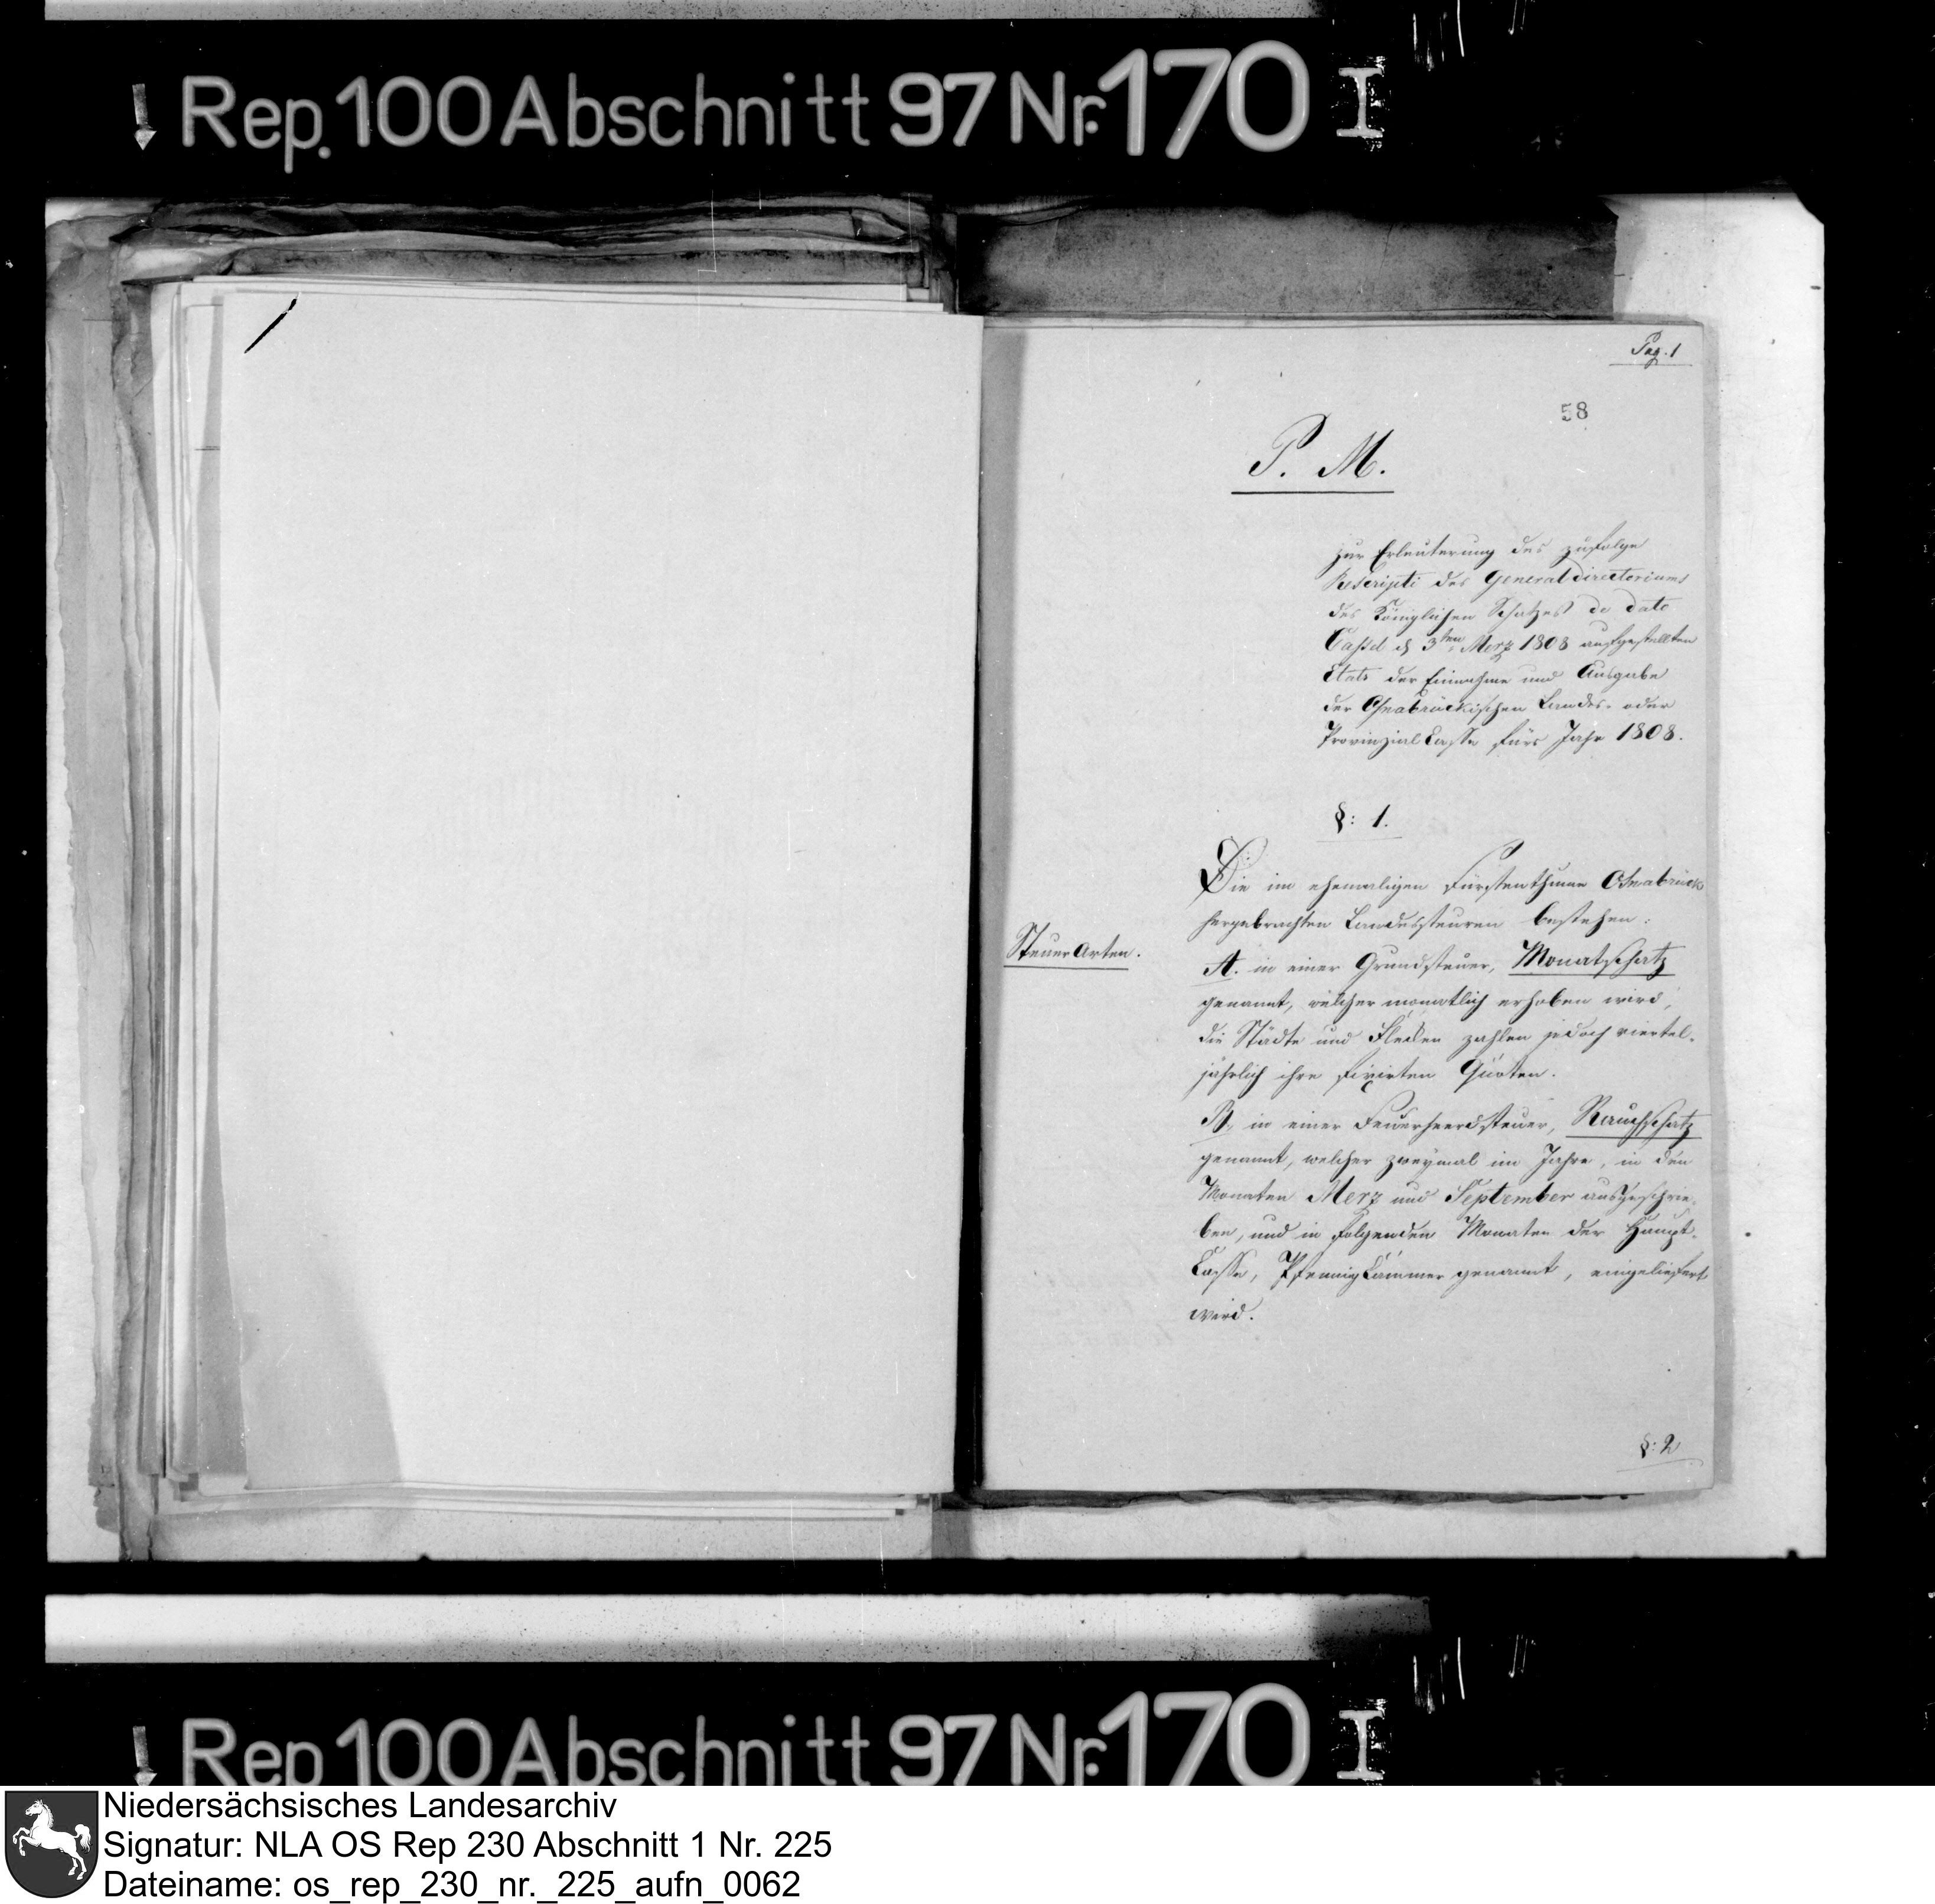 Rep. 100 Abschnitt 97 Nr. 170 I
Pag. 1
58
P. M.
zur Erleuterung des zufolge
Rescripti des Generaldirectoriums
des Königlichen Schatzes de dato
Cassel d 3ten Merz 1808 aufgestellten
Etats der Einnahme und Ausgabe
der Osnabrückischen Landes- oder
Provinzial Casse fürs Jahr 1808.
§: 1.
Die im ehemaligen Fürstenthume Osnabrück
hergebrachten Landessteuren bestehen:
Steuer Arten.
A. in einer Grundsteuer, Monatschatz
genannt, welcher monatlich erhoben wird,
die Städte und Flecken zahlen jedoch viertel-
jährlich ihre fixirten Quoten.
B, in einer Feuerheerdsteuer, Rauchschatz
genannt, welcher zweymal im Jahre, in den
Monaten Merz und September ausgeschrie-
ben, und in folgenden Monaten der Haupt-
Casse, Pfennigkammer genannt, eingeliefert
wird.
§: 2
Rep 100 Abschnitt 97 Nr. 170 I
Niedersächsisches Landesarchiv
Signatur: NLA OS Rep 230 Abschnitt 1 Nr. 225
Dateiname: os_rep_230_nr._225_aufn_0062